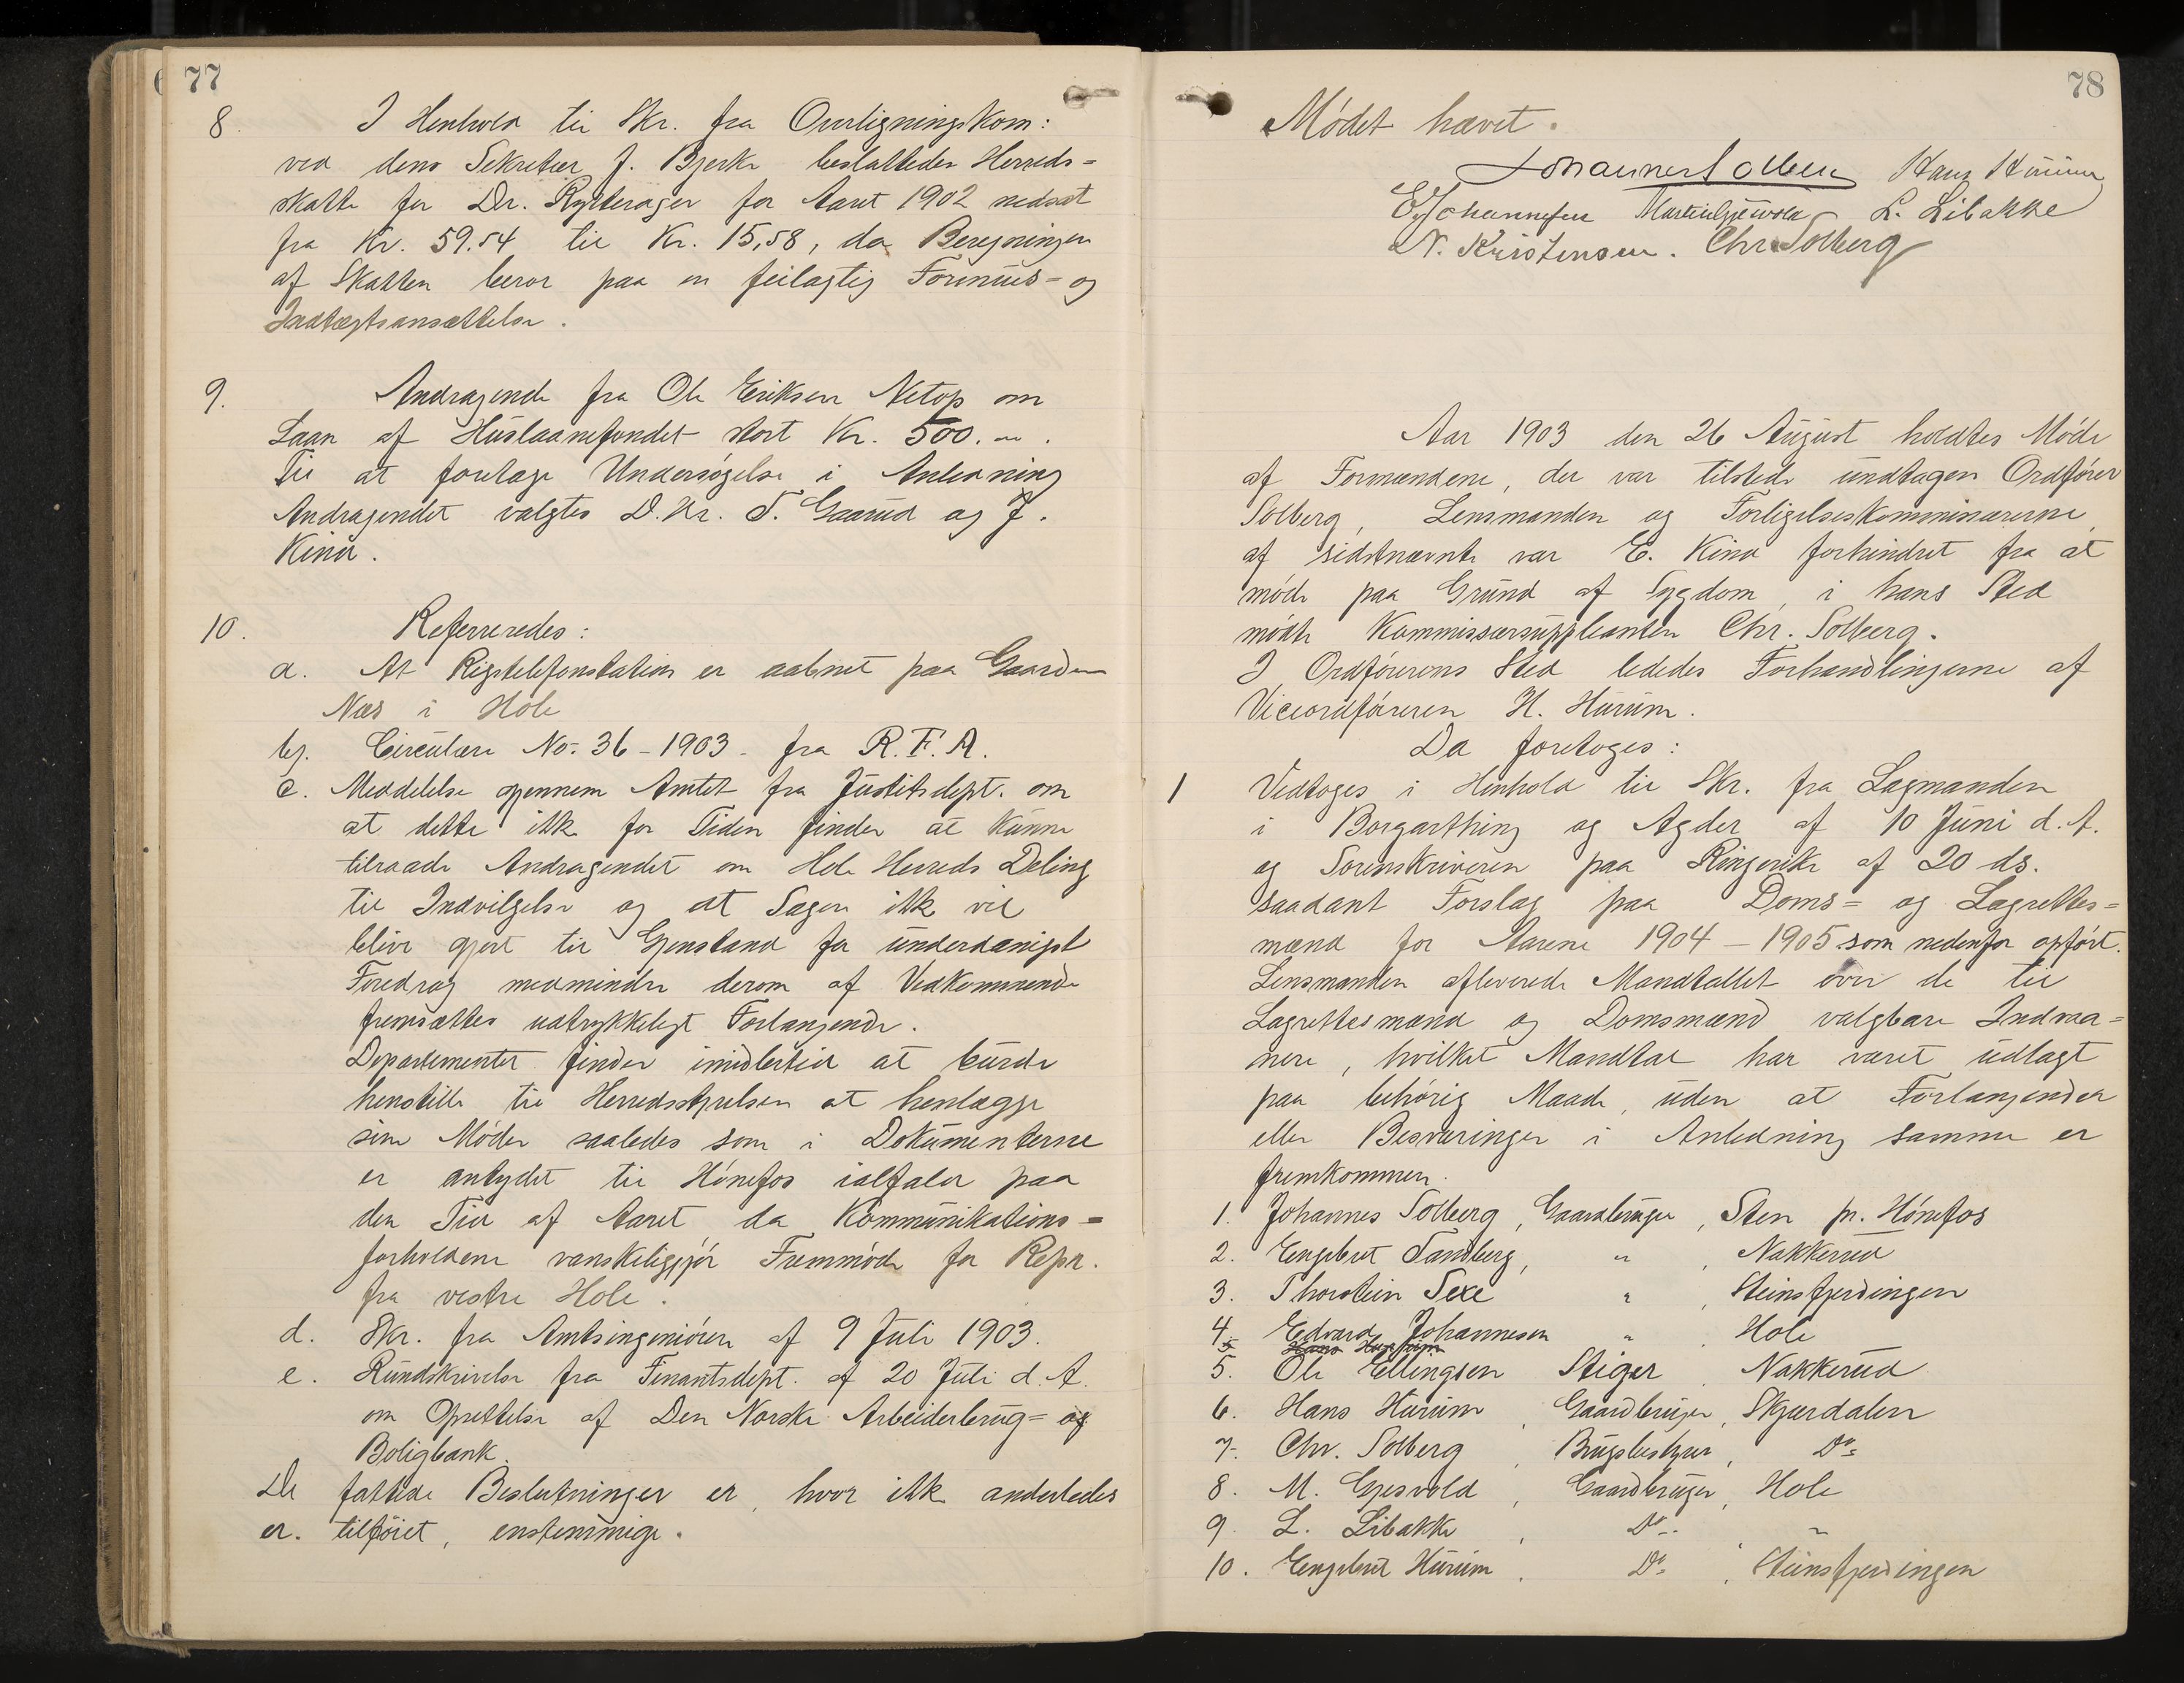 77
8. I Henhold til Skr. fra Overligningskom:
ved dens Sekretær J. Bjerke besluttedes Herreds=
skatte for Dr. Rytterager for Aaret 1902 nedsat
fra Kr. 59.54 til Kr. 15,58, da Beregningen
af Skatten beror paa en feilagtig Formues= og
Indtægtsansættelse.
9. Andragende fra Ole Eriksen Netop om
Laan af Huslaanefondet stort Kr. 500.
Til at foretage Undersøgelse i Anledning
Andragendet valgtes D.Hr. T. Gaarud og J.
Kind.
10. Refereredes:
a. At Rigstelefonstation er aabnet paa Gaarden
Næs i Hole
b. Circulære No. 36 - 1903 - fra R.F.A.
c. Meddelelse gjennem Amtet fra Justitsdept. om
at dette ikke for Tiden finder at kunne
tilraade Andragendet om Hole Herreds Deling
til Indvilgelse og at Sagen ikke vil
blive gjort til Gjenstand for underdanigst
Foredrag medmindre derom af Vedkommende
fremsættes udtrykkeligt Forlangende.
Departementet finder imidlertid at burde
henstille til Herredsstyrelsen at henlægge
sine Møder saaledes som i Dokumenterne
er antydet til Hønefos ialfald paa
den Tid af Aaret da Kommunikations=
forholdene vanskeliggjør Fremmøde for Repr.
fra vestre Hole.
d. Skr. fra Amtsingeniøren af 9 Juli 1903.
e. Rundskrivelse fra Finantsdept. af 20 Juli d.A.
om Oprettelse af Den Norske Arbeiderbrug= og
Boligbank.
De fattede Beslutninger er, hvor ikke anderledes
er tilføiet, enstemmige.
78
Mødet hævet.
Johannes Solberg Hans Hurum
E. Johannesen Martin Gjesvold L. Libakke
N. Kristensen. Chr. Solberg
Aar 1903 den 26 August holdtes Møde
af Formændene, der var tilstede undtagen Ordfører
Solberg, Lensmanden og Forligelseskommissærerne,
af sidstnævnte var E. Kind forhindret fra at
møde paa Grund af Sygdom, i hans Sted
mødte Kommissærsuppleanten Chr. Solberg.
I Ordførerens Sted lededes Forhandlingerne af
Viceordføreren H. Hurum.
Da foretoges:
1 Vedtoges i Henhold til Skr. fra Lagmanden
i Borgarthing og Agder af 10 Juni d.A.
og Sorenskriveren paa Ringerike af 20 ds.
saadant Forslag paa Doms= og Lagrettes=
mænd for Aarene 1904 - 1905 som nedenfor opført.
Lensmanden afleverede Mandtallet over de til
Lagrettesmænd og Domsmænd valgbare Indvaa=
nere, hvilket Mandtal har været udlagt
paa behørig Maade, uden at Forlangender
eller Besværinger i Anledning samme er
fremkommen.
1. Johannes Solberg, Gaardbruger, Sten pr. Hønefos
2. Engebret Sandberg, " , Nakkerud
3. Thorstein Sexe " , Steinsfjerdingen
4. Edvard Johannesen " . Hole
5 Hans Hurum
5. Ole Ellingsen Stiger . Nakkerud
6. Hans Hurum , Gaardbruger, Skjærdalen
7. Chr. Solberg , Brugsbestyrer, Do
8. M. Gjesvold , Gaardbruger, Hole
9. L. Libakke , Do "
10. Engebret Hurum . Do , Steinsfjerdingen